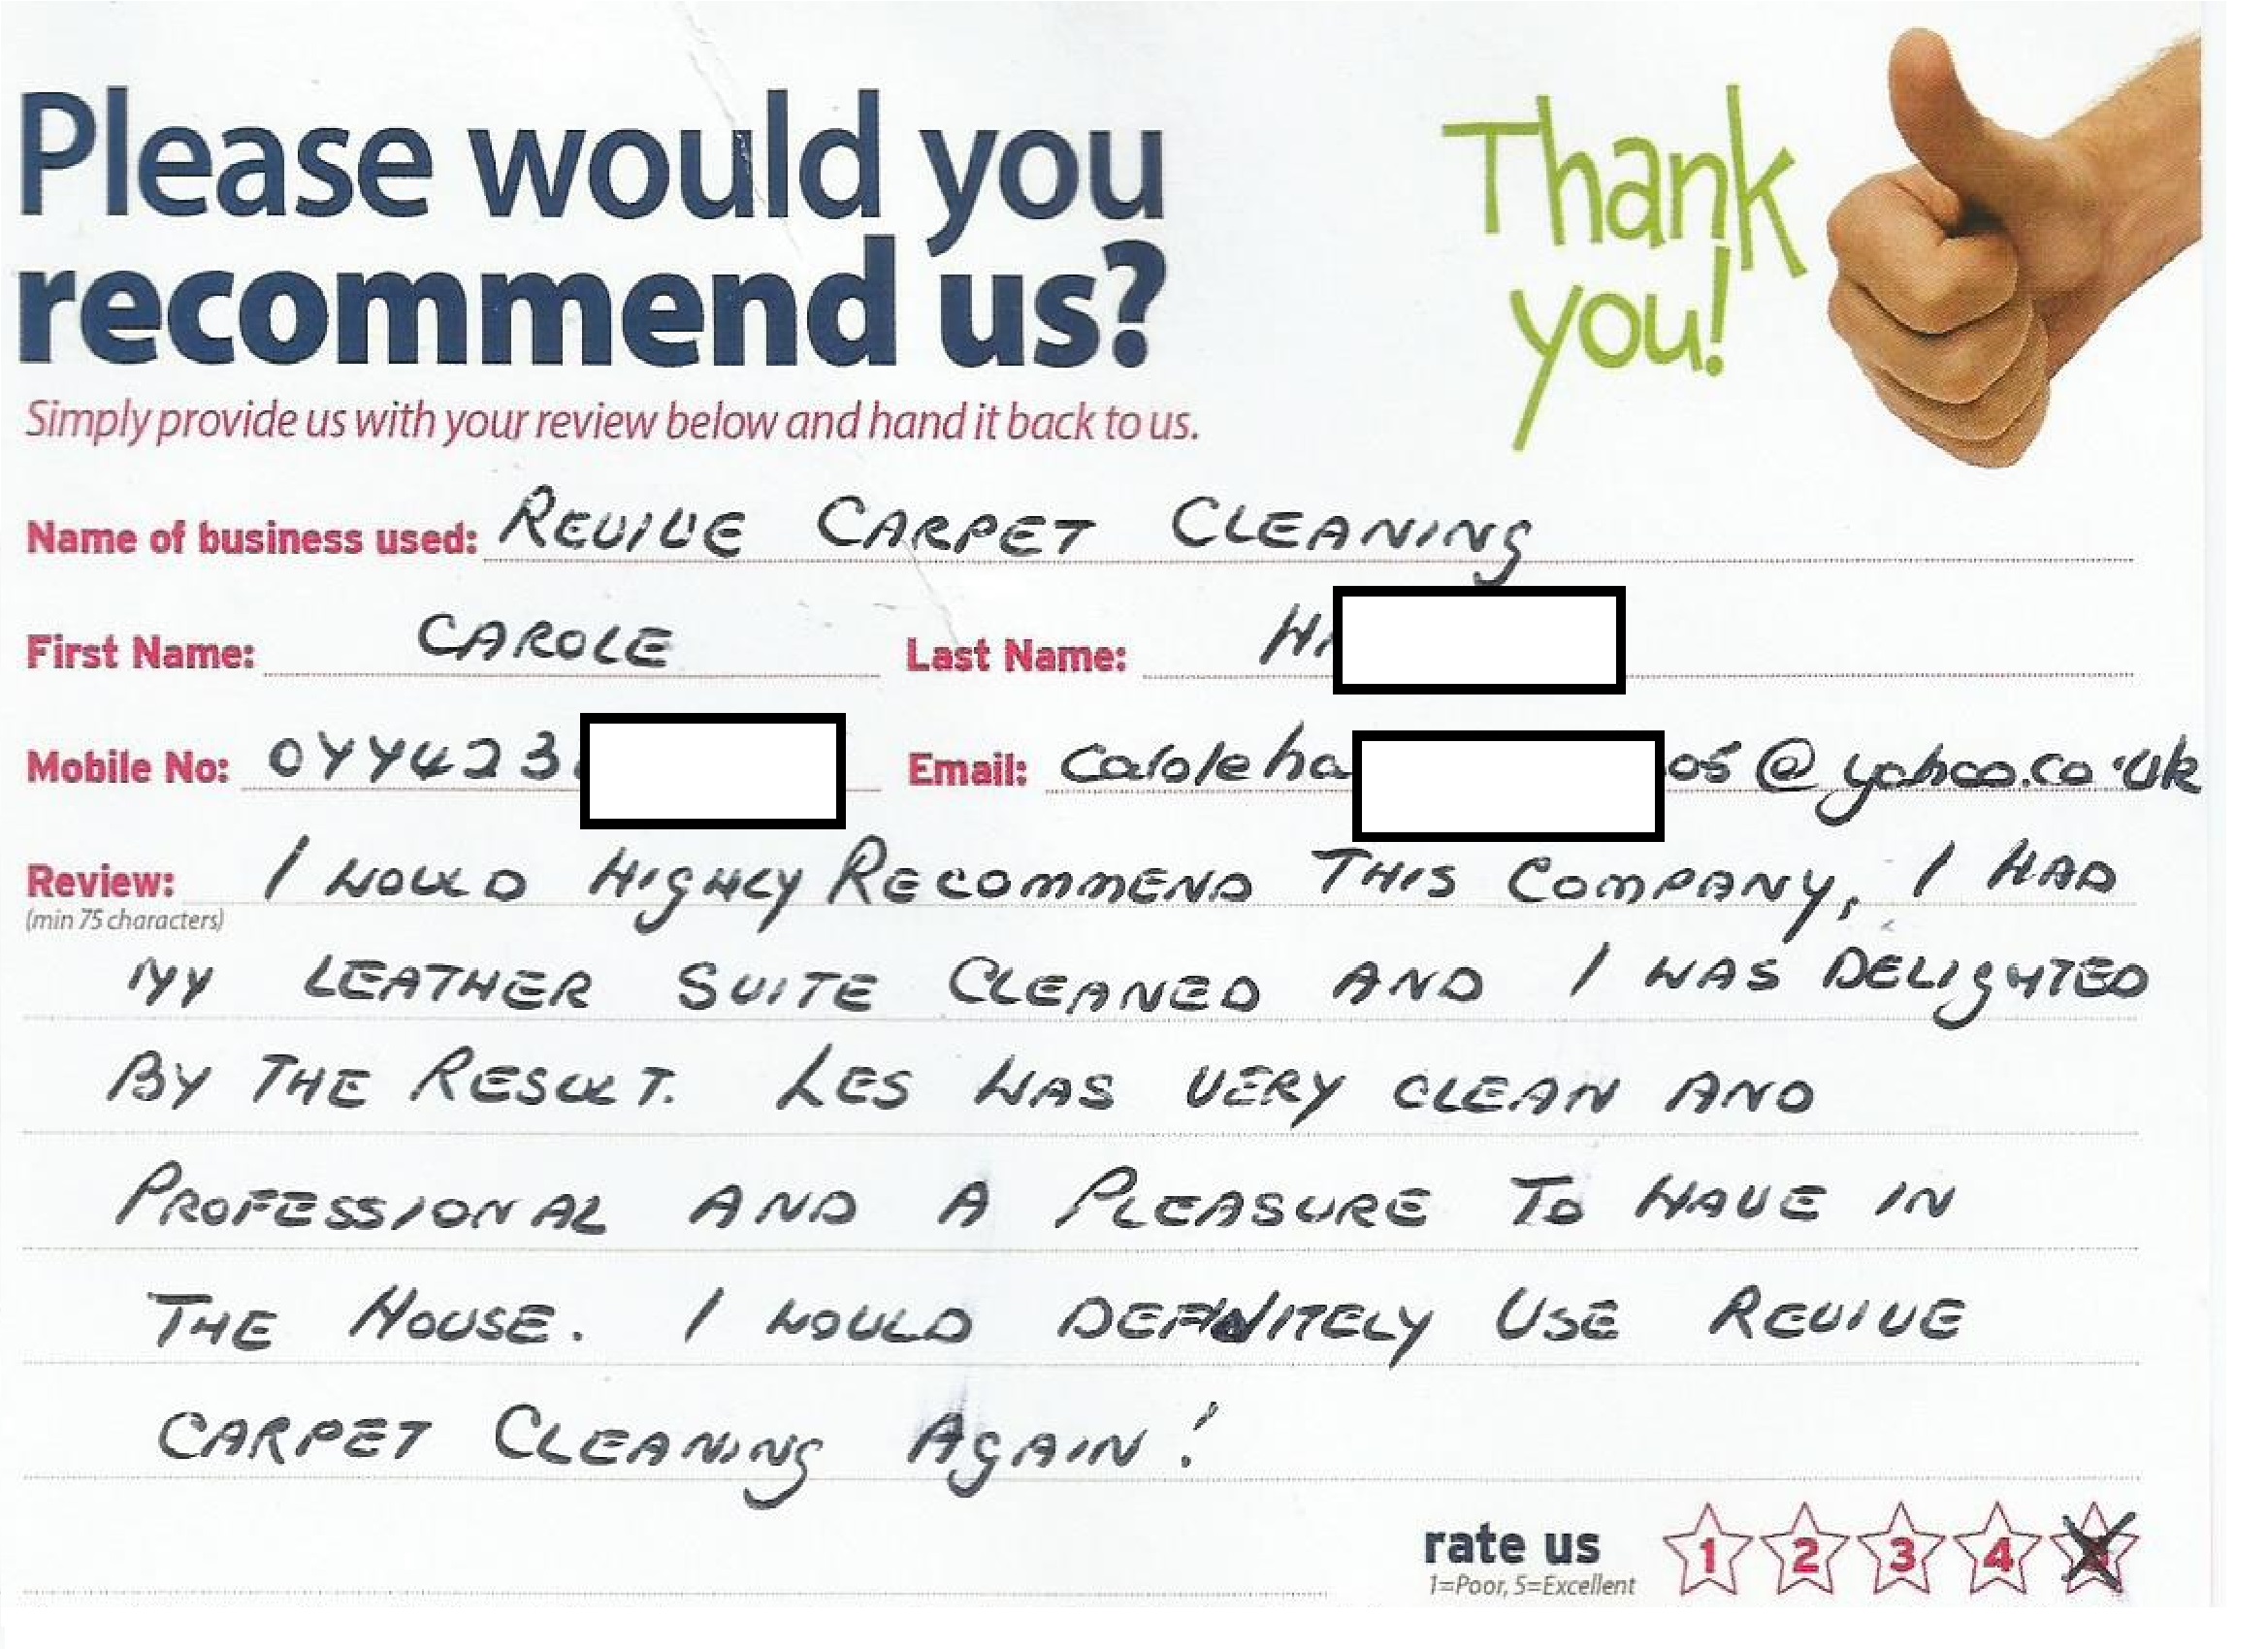 Please would you
recommend us?
Thank
you!
Simply provide us with your review below and hand it back to us.
Name of business used: REVIVE CARPET CLEANING
First Name: CAROLE Last Name:
Mobile No: Email: @yahoo.co.uk
Review: I WOULD HIGHLY RECOMMEND THIS COMPANY, I HAD
(min 75 characters)
MY LEATHER SUITE CLEANED AND I WAS DELIGHTED
BY THE RESULT. LES WAS VERY CLEAN AND
PROFESSIONAL AND A PLEASURE TO HAVE IN
THE HOUSE. I WOULD DEFINITELY USE REVIVE
CARPET CLEANING AGAIN!
rate us 1 2 3 4
1=Poor, 5=Excellent